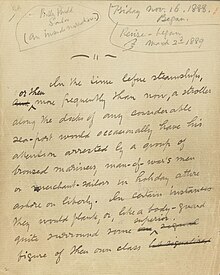 Billy Budd
Sailor
(An inside narrative)
Friday, Nov. 16, 1888.
Began.
Revise - began
March 2d 1889
In the time before steamships,
or then more frequently than now, a stroller
along the docks of any considerable
sea-port would occasionally have his
attention arrested by a group of
bronzed mariners, man-of-war's men
or merchant-sailors in holiday attire
ashore on liberty. In certain instances
they would flank, or, like a body-guard
quite surround some superior
figure of their own class